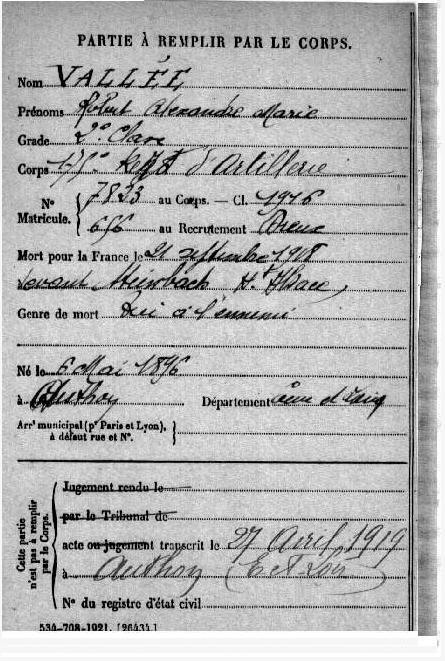 PARTIE À REMPLIR PAR LE CORPS.
Nom VALLÉE
Prénoms Robert Alexandre Marie
Grade 2e Classe
Corps d'Artillerie
N° Matricule. 7833 au Corps. — Cl. 1916
656 au Recrutement Dreux
Mort pour la France le 21 septembre 1918
devant H.t Alsace
Genre de mort Tué à l'ennemi
Né le 6 Mai 1896
à Authon Département Eure et Loir
Arrt municipal (pr Paris et Lyon), à défaut rue et N°.
Cette partie n'est pas à remplir par le Corps.
Jugement rendu le
par le Tribunal de
acte ou jugement transcrit le 27 Avril 1919
à Authon (E et Loir)
N° du registre d'état civil
534-708-1921. [26434.]